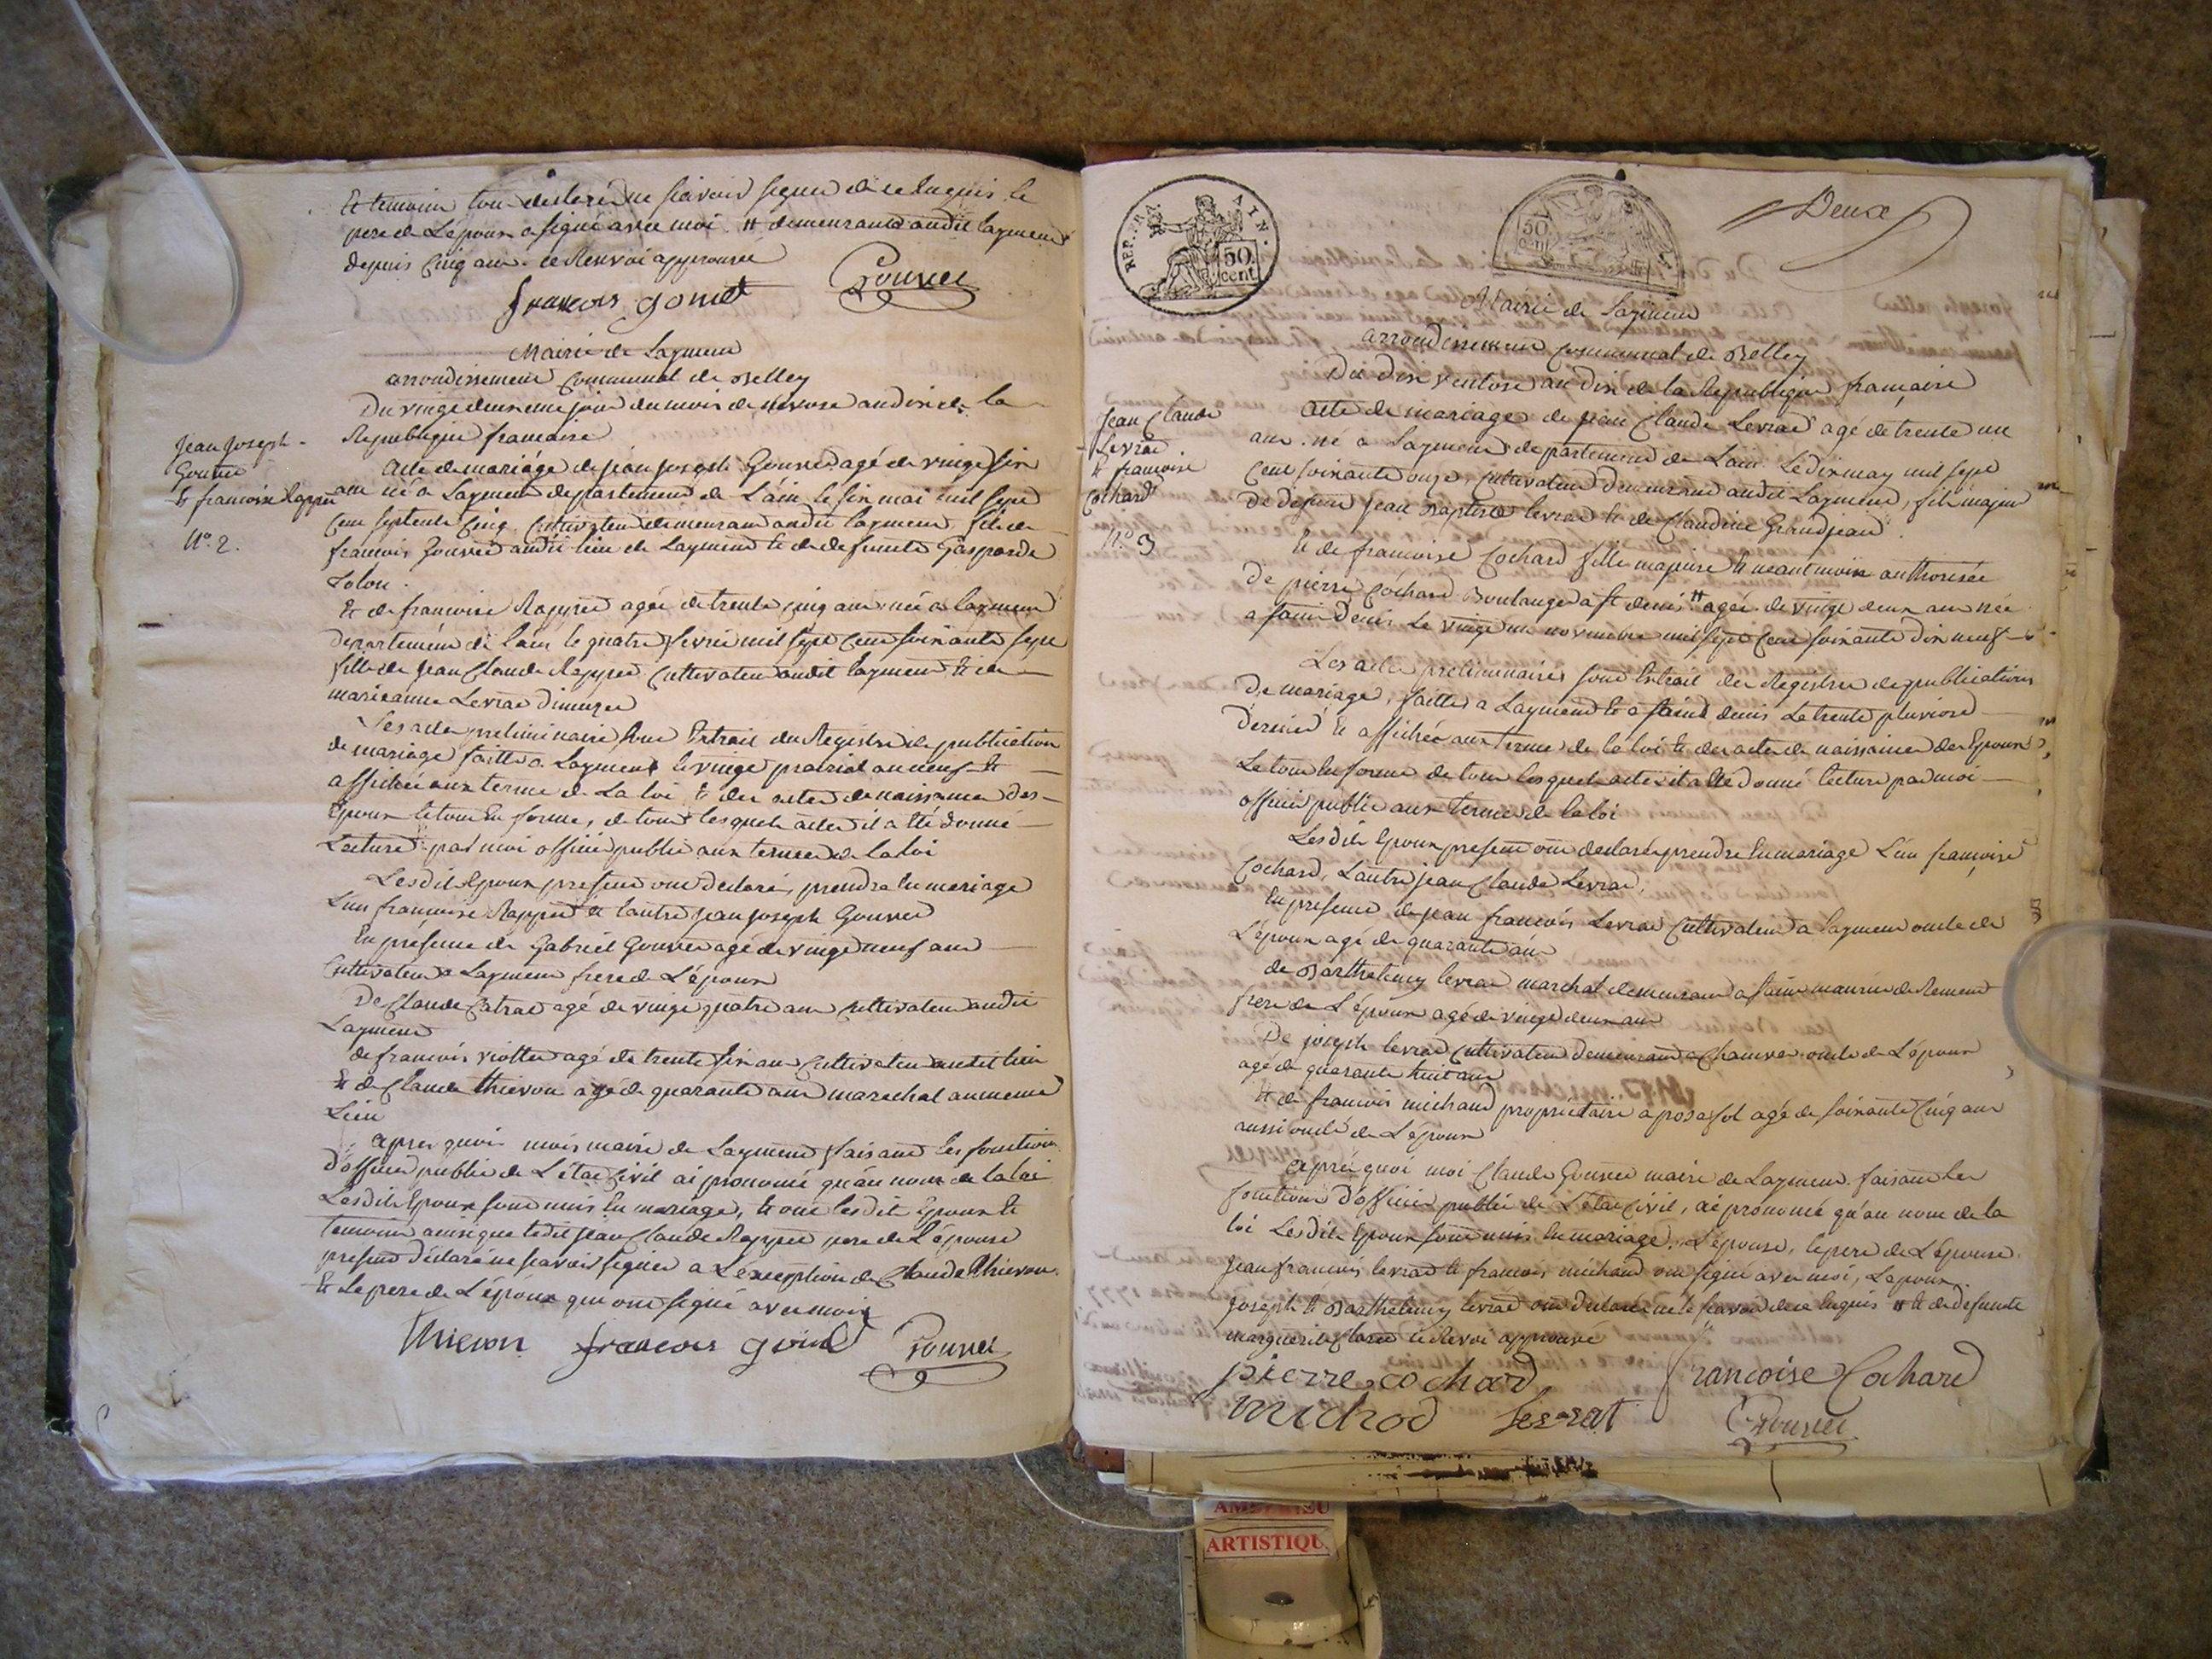 Et temoins tous declaré ne scavoir signer de ce enquis le
pere de L'epoux a signé avec moi. # demeurants audit Laymend
depuis Cinq ans. ce Renvoi approuvé
francois gouvet Gouvet
Mairie de Laymend
arrondissement Communal de Belley
Du vingt deuxieme jour du mois de nivose an dix de la
Republique francaise
Jean Joseph
Gouvet
Et francoise Rappet
N.º 2.
Acte de mariage de jean joseph Gouvet agé de vingt six
ans né a Laymend departement de L'ain le six mai mil sept
Cent septente Cinq Cultivateur demeurant audit Laymend, fils de
francois Gouvet audit lieu de Laymend et de defunte Gasparde
Et de francoise Rappet agée de trente Cinq ans née a Laymend
departement de L'ain le quatre fevrier mil sept Cent soixante sept
fille de Jean Claude Rappet Cultivateur audit Laymend et de
marieanne Levrat
Les actes preliminaires sont Extrait du Registre de publication
de mariage faitte a Laymend le vingt prairial an neuf et
affichée aux termes de La loi, et des actes de naissances des
Epoux le tout En forme, de tous lesquels actes il a été donné
Lecture par moi officier public aux termes de la loi
Lesdits Epoux presents ont declaré prendre En mariage
L'un francoise Rappet et l'autre jean joseph Gouvet
En présence de Gabriel Gouvet agé de vingt neuf ans
Cultivateur a Laymend frere de L'époux
De Claude Catrat agé de vingt quatre ans Cultivateur audit
Laymend
de francois viollet agé de trente six ans Cultivateur audit lieu
Et de Claude thievon agé de quarante ans marechal au meme
Lieu
Apres quoi moi maire de Laymend faisant les fonctions
d'officier public de L'état Civil ai prononcé qu'au nom de la loi
Lesdits Epoux sont unis En mariage, et ont lesdits Epoux et
temoins ainsi que ledit jean Claude Rappet pere de L'épouse
present déclaré ne scavoir signer a L'exception de Claude thievon
Et le pere de L'époux qui ont signé avec moi
thievon francois gouvet Gouvet
REP. FRA. AIN.
50 cent
50
Deux
Mairie de Laymend
arrondissement Communal de Belley
Du Dix ventose an dix de la Republique française
Jean Claude
Levrat
et francoise
Cochard
N.º 3
Acte de mariage de jean Claude Levrat agé de trente un
ans né a Laymend departement de L'ain Le dix may mil sept
Cent soixante onze, Cultivateur demeurant audit Laymend, fils majeur
de defunt Jean Baptiste levrat et de Claudine Grandjean
Et de francoise Cochard fille majeure et neantmoins authorisée
De pierre Cochard Boulanger a St denis # agée de vingt deux ans née
a saint Denis Le vingt un novembre mil sept Cent soixante dix neuf
Les actes preliminaires sont Extrait des Registres de publications
de mariage, faittes a Laymend et a saint denis Le trente pluviose
dernier et affichée aux termes de la loi et des actes de naissance des Epoux
Le tout En forme de tous lesquels actes il a été donné lecture par moi
officier public aux termes de la loi
Lesdits Epoux presents ont declaré prendre En mariage L'un françoise
Cochard, L'autre jean Claude Levrat,
En presence de jean francois Levrat Cultivateur a Laymend oncle de
L'époux agé de quarante ans
de Barthelemy levrat marchal demeurant a saint maurice de Remens
frere de L'époux agé de vingt deux ans
De joseph levrat Cultivateur demeurant a oncle de L'époux
agé de quarante huit ans
Et de francois michaud proprietaire a posafol agé de soixante Cinq ans
aussi oncle de L'époux
Après quoi moi Claude Gouvet maire de Laymend faisant les
fonctions d'officier public de L'état Civil, ai prononcé qu'au nom de la
loi Lesdits Epoux sont unis En mariage, L'épouse, le pere de L'épouse
Jean francois levrat et francois michaud ont signé avec moi, L'epoux
Joseph et Barthelemy levrat ont declaré ne le scavoir de ce Enquis # et de defunte
marguerite ce Renvoi approuvé
pierre cochard francoise Cochard
michod levrat Gouvet
ARTISTIQU